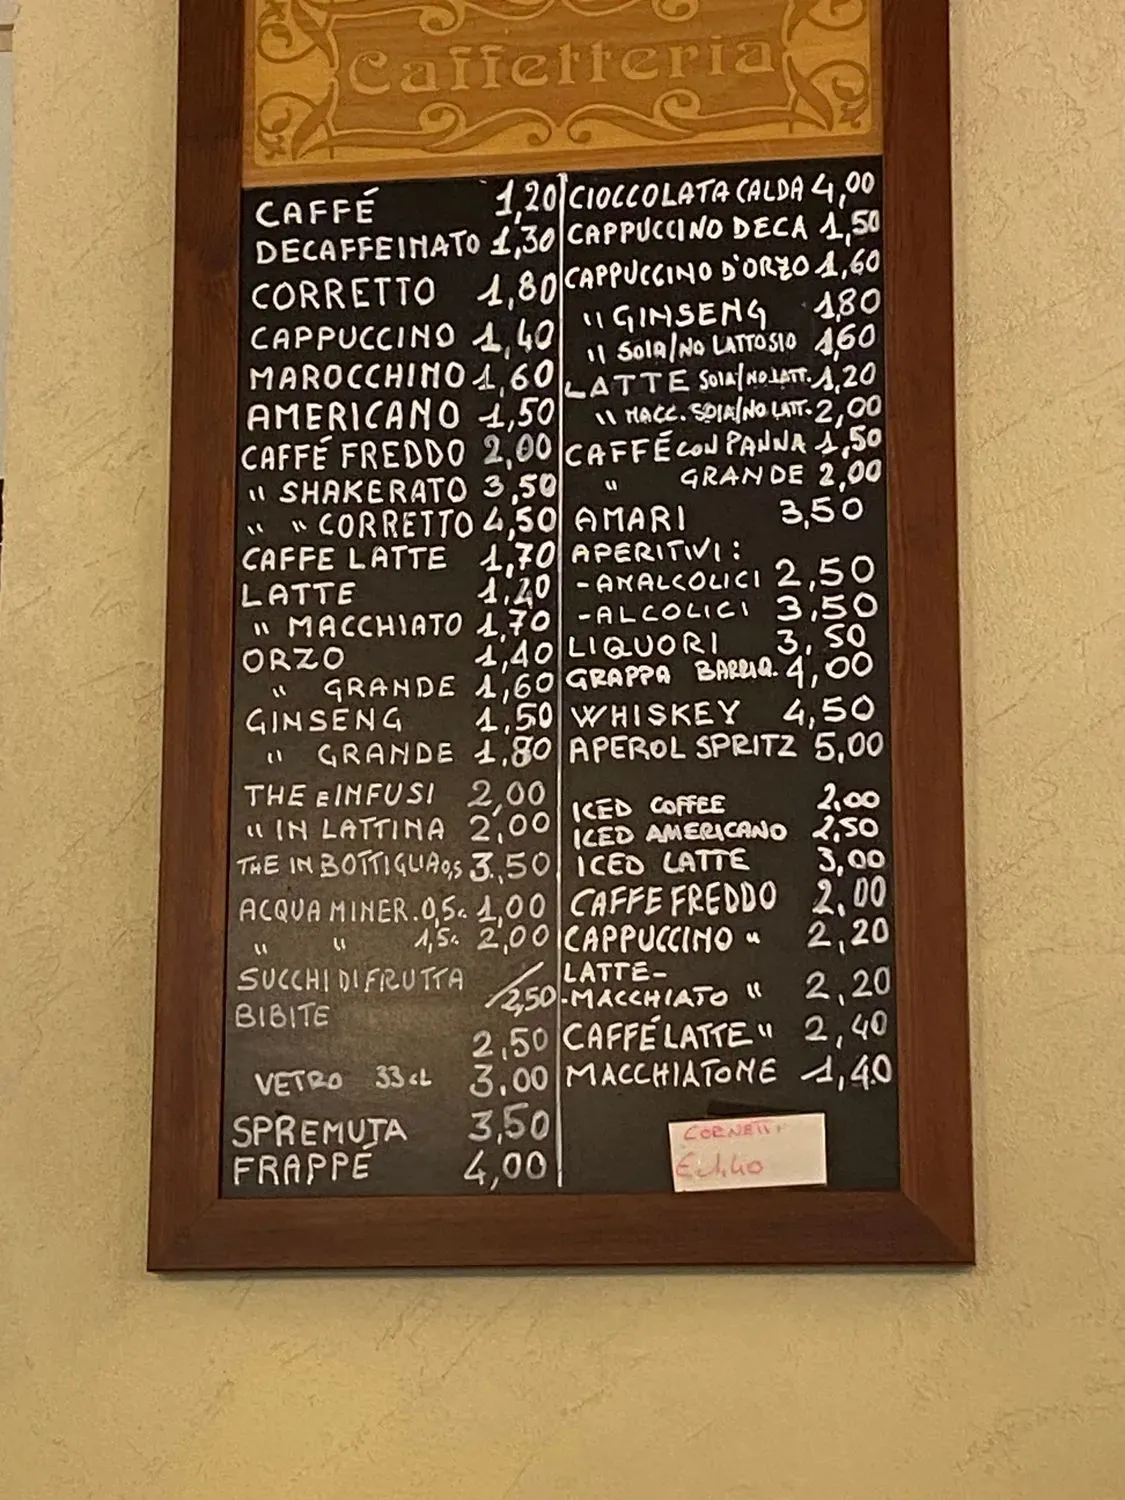 Caffetteria
CAFFÉ 1,20
DECAFFEINATO 1,30
CORRETTO 1,80
CAPPUCCINO 1,40
MAROCCHINO 1,60
AMERICANO 1,50
CAFFÉ FREDDO 2,00
" SHAKERATO 3,50
" " CORRETTO 4,50
CAFFE LATTE 1,70
LATTE 1,20
" MACCHIATO 1,70
ORZO 1,40
" GRANDE 1,60
GINSENG 1,50
" GRANDE 1,80
THE E INFUSI 2,00
" IN LATTINA 2,00
THE IN BOTTIGLIA 0,5 3,50
ACQUA MINER. 0,5L 1,00
" " 1,5L 2,00
SUCCHI DI FRUTTA / 2,50
BIBITE
2,50
VETRO 33 cL 3,00
SPREMUTA 3,50
FRAPPÉ 4,00
CIOCCOLATA CALDA 4,00
CAPPUCCINO DECA 1,50
CAPPUCCINO D'ORZO 1,60
" GINSENG 1,80
" SOIA/NO LATTOSIO 1,60
LATTE SOIA/NO LATT. 1,20
" MACC. SOIA/NO LATT. 2,00
CAFFÉ CON PANNA 1,50
" GRANDE 2,00
AMARI 3,50
APERITIVI:
- ANALCOLICI 2,50
- ALCOLICI 3,50
LIQUORI 3,50
GRAPPA BARRIQ. 4,00
WHISKEY 4,50
APEROL SPRITZ 5,00
ICED COFFEE 2,00
ICED AMERICANO 2,50
ICED LATTE 3,00
CAFFE FREDDO 2,00
CAPPUCCINO " 2,20
LATTE-
-MACCHIATO " 2,20
CAFFÉ LATTE " 2,40
MACCHIATONE 1,40
CORNETTI
€ 1,40